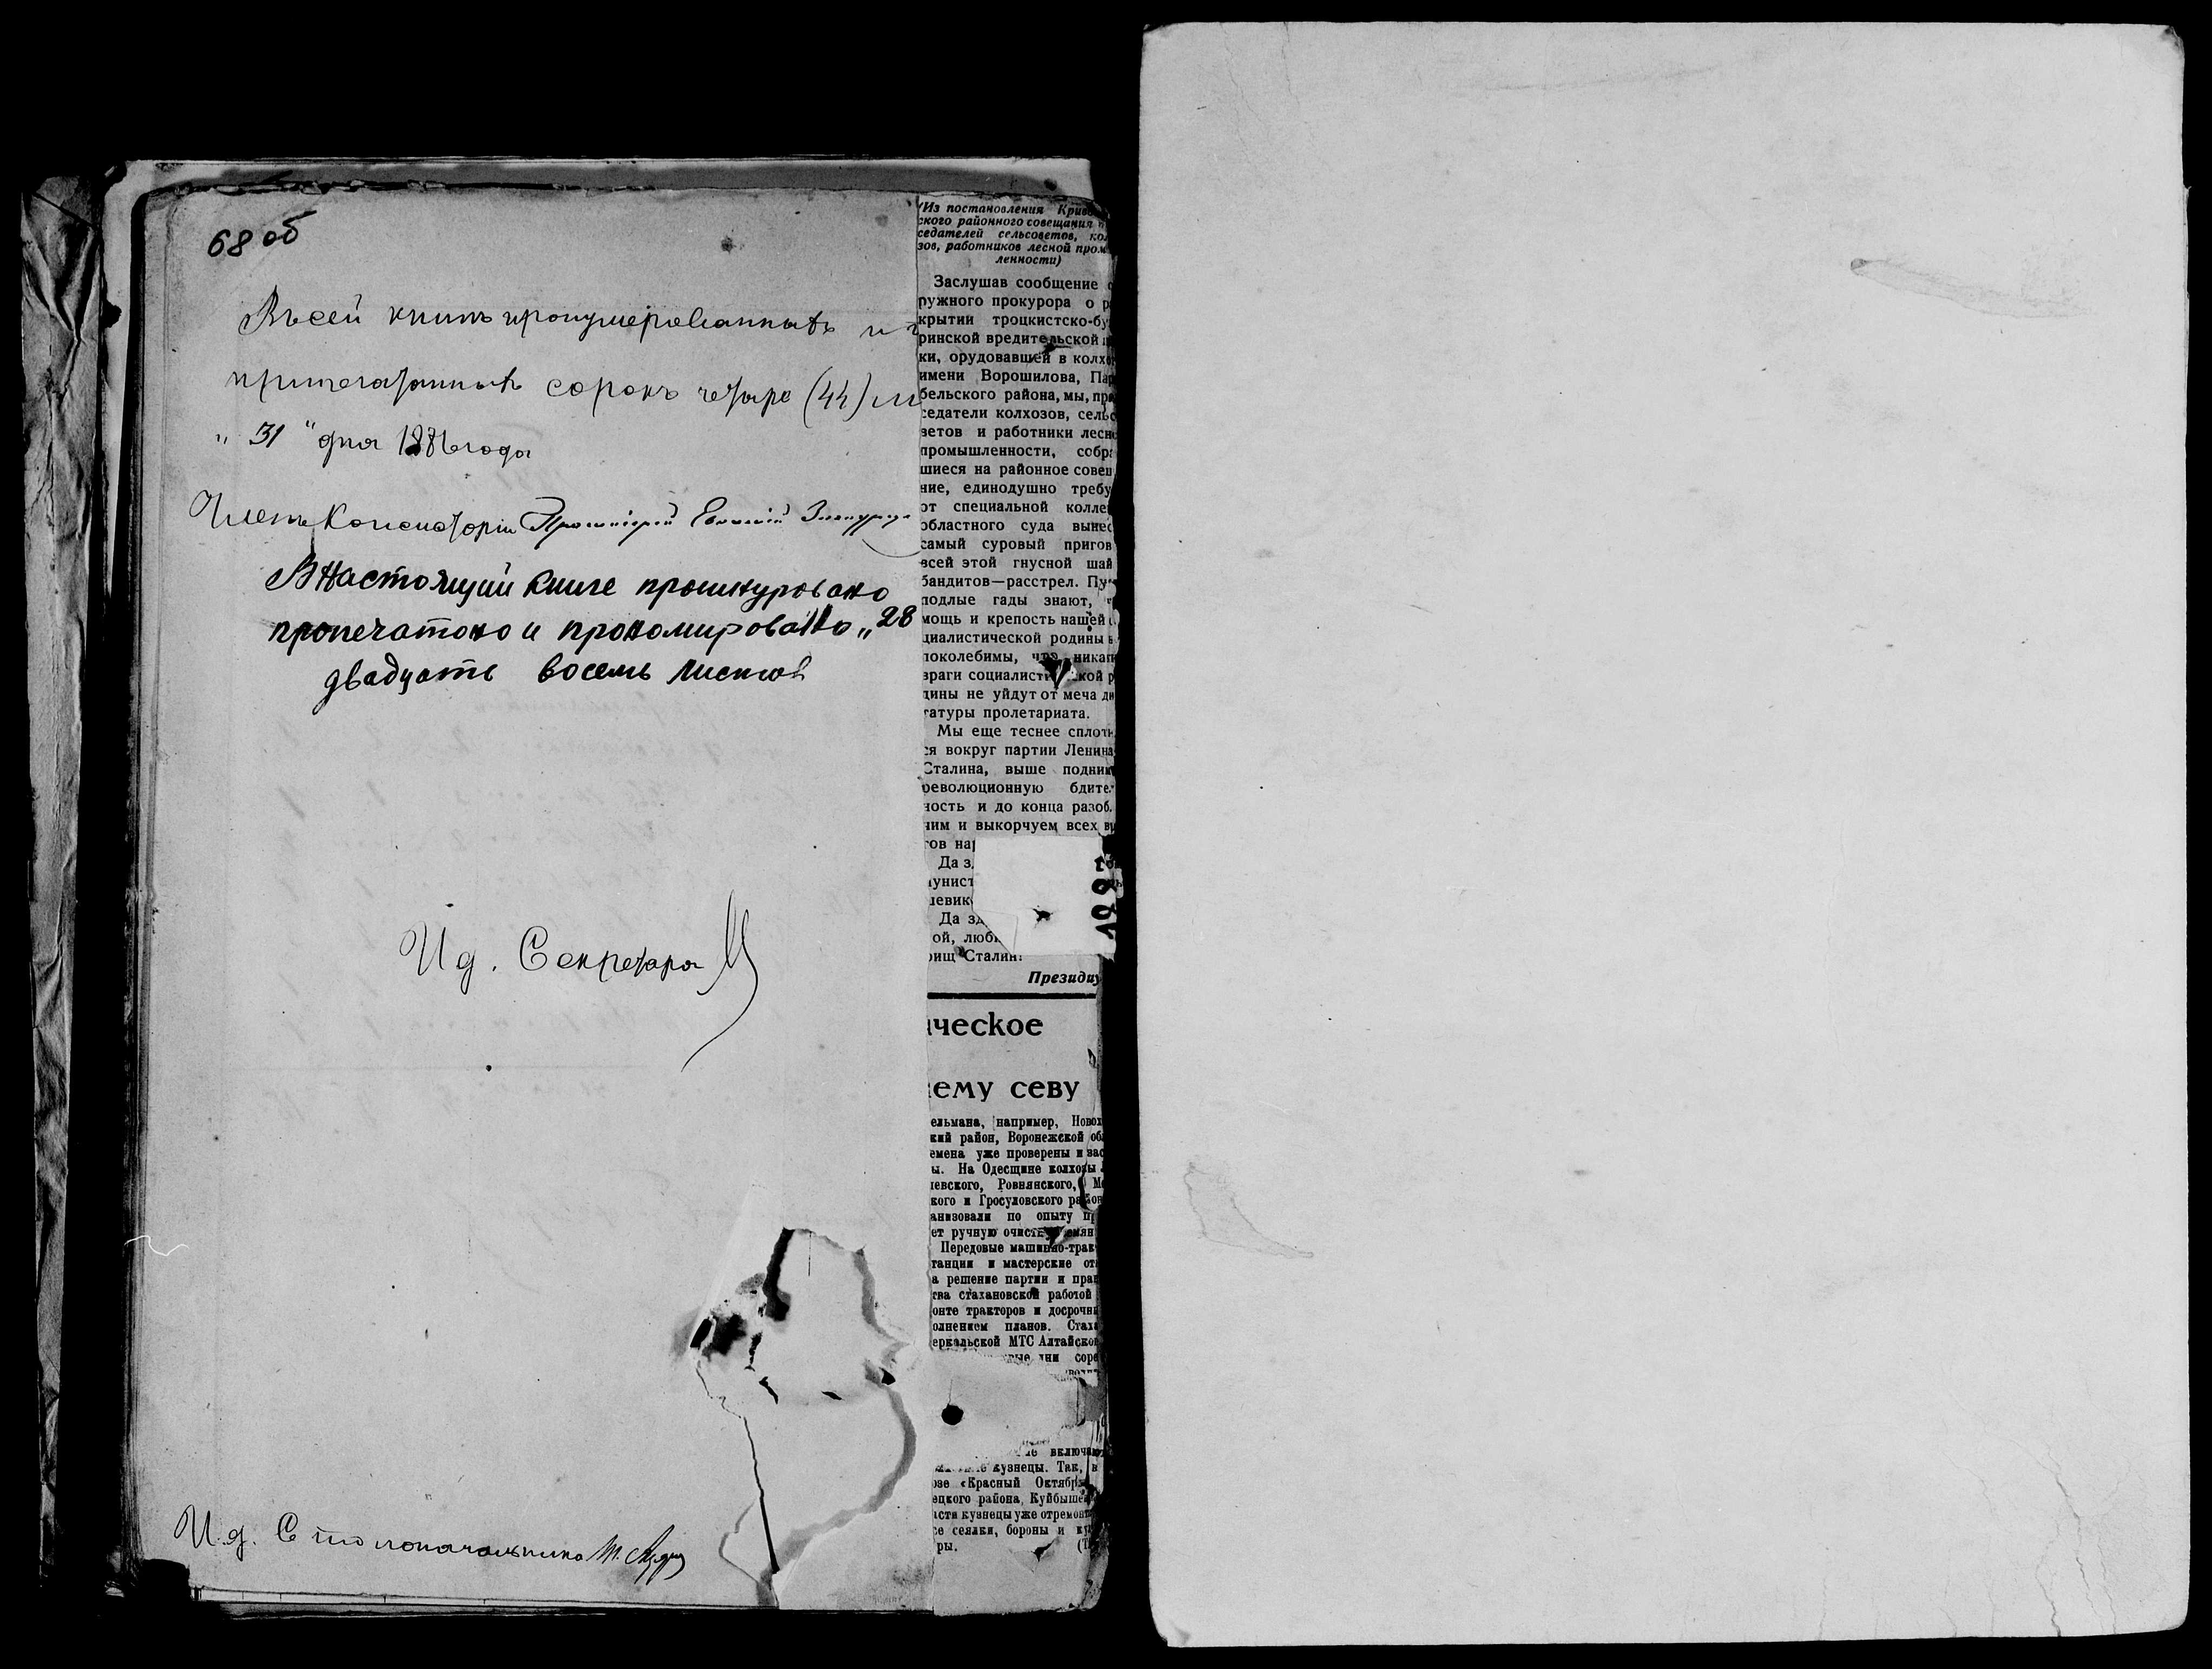 68 об
Въ сей книгѣ пронумерованныхъ и
припечатанныхъ сорокъ четыре (44)
„ 31 " дня 1886 года
Членъ Консисторіи Протоіерей Евгеній
В Настоящий книге прошнуровано
пропечатоно и прономировано „28
двадцать восемь листов
И д. Секретаря
И. д. Столоначальника
(Из постановления Криво
ского районного совещания п
седателей сельсоветов, кол
зов, работников лесной пром
ленности)
Заслушав сообщение о
ружного прокурора о р
крытии троцкистско-бу
ринской вредительской
ки, орудовавшей в колхо
имени Ворошилова, Пар
бельского района, мы, пре
седатели колхозов, сельс
ветов и работники лесно
промышленности, собра
шиеся на районное совещ
ние, единодушно требу
от специальной колле
областного суда вынес
самый суровый пригов
всей этой гнусной шай
бандитов—расстрел. Пу
подлые гады знают, ч
мощь и крепость нашей с
циалистической родины н
поколебимы, что никак
враги социалисти кой р
дины не уйдут от меча ди
татуры пролетариата.
Мы еще теснее сплоти
ся вокруг партии Ленина
Сталина, выше подним
революционную бдитель
ность и до конца разоб
чим и выкорчуем всех вр
гов на
Да з
мунист
шевик
Да зд
ой, люб
рищ Сталин!
Президиу
ическое
ему севу
ельмана, например, Новох
кий район, Воронежской об
емена уже проверены и зас
ы. На Одесщине колхозы
левского, Ровнянского, М
кого и Гросуловского район
анизовали по опыту пр
ет ручную очистку семян
Передовые машинно-трак
танции и мастерские отв
а решение партии и прав
тва стахановской работой
онте тракторов и досрочны
олнением планов. Стаха
еркальской МТС Алтайской
вые дни соре
включаю
кузнецы. Так, в
озе «Красный Октябрь
ецкого района, Куйбыше
асти кузнецы уже отремон
се сеялки, бороны и ку
ры. (Т